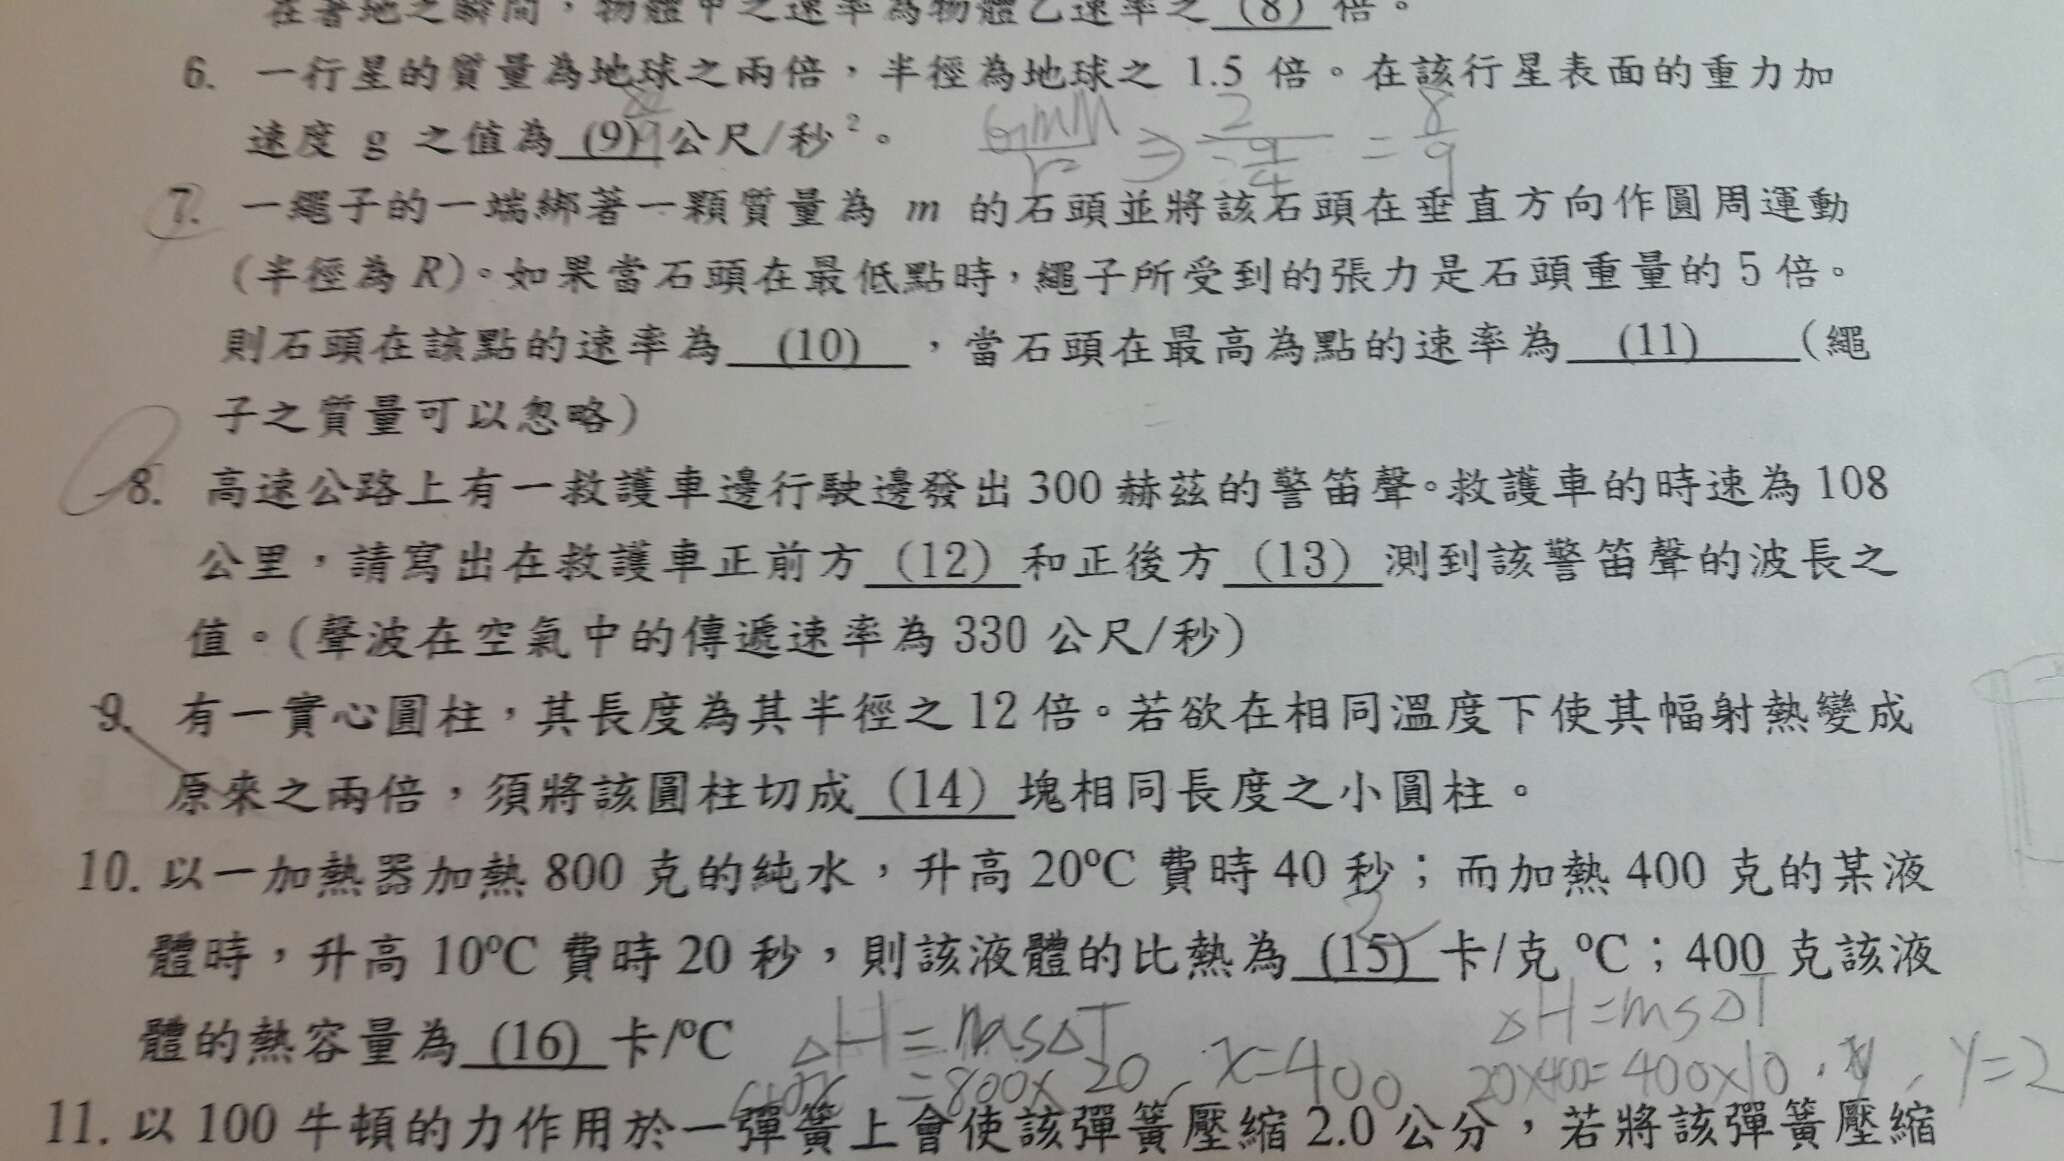 在著地之瞬間，物體甲之速率為物體乙速率之 (8) 倍。
6. 一行星的質量為地球之兩倍，半徑為地球之 1.5 倍。在該行星表面的重力加
速度 g 之值為 (9) 公尺/秒²。
GmM/r² ⇒ 2/(9/4) = 8/9
7. 一繩子的一端綁著一顆質量為 m 的石頭並將該石頭在垂直方向作圓周運動
(半徑為 R)。如果當石頭在最低點時，繩子所受到的張力是石頭重量的 5 倍。
則石頭在該點的速率為 (10) ，當石頭在最高為點的速率為 (11) (繩
子之質量可以忽略)
8. 高速公路上有一救護車邊行駛邊發出 300 赫茲的警笛聲。救護車的時速為 108
公里，請寫出在救護車正前方 (12) 和正後方 (13) 測到該警笛聲的波長之
值。(聲波在空氣中的傳遞速率為 330 公尺/秒)
9. 有一實心圓柱，其長度為其半徑之 12 倍。若欲在相同溫度下使其幅射熱變成
原來之兩倍，須將該圓柱切成 (14) 塊相同長度之小圓柱。
10. 以一加熱器加熱 800 克的純水，升高 20ºC 費時 40 秒；而加熱 400 克的某液
2
體時，升高 10ºC 費時 20 秒，則該液體的比熱為 (15) 卡/克 ºC；400 克該液
體的熱容量為 (16) 卡/ºC
ΔH=msΔT
ΔH=msΔT
=800×20, x=400
20×400=400×10·y, y=2
11. 以 100 牛頓的力作用於一彈簧上會使該彈簧壓縮 2.0 公分，若將該彈簧壓縮